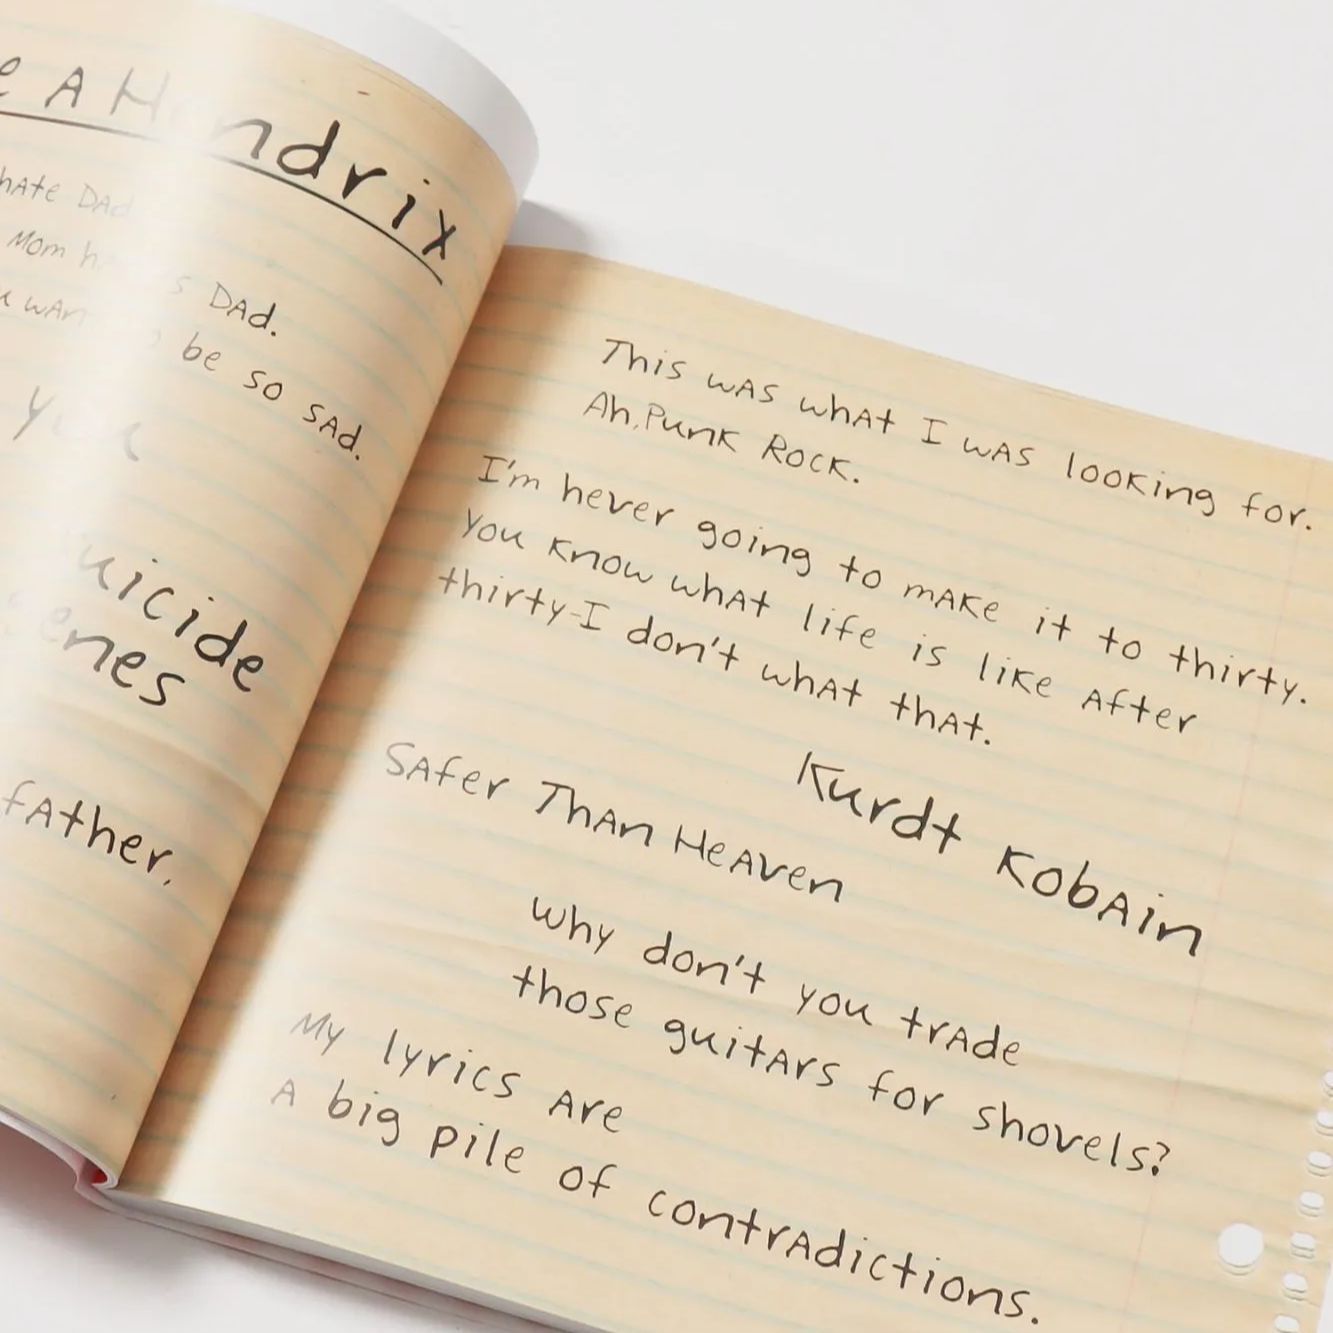 e A Hendrix
hate Dad
Mom hates Dad.
be so sad.
uicide
enes
father.
This was what I was looking for.
Ah, Punk Rock.
I'm hever going to make it to thirty.
You know what life is like after
thirty-I don't what that.
Kurdt Kobain
Safer Than Heaven
Why don't you trade
those guitars for shovels?
My lyrics are
A big pile of contradictions.